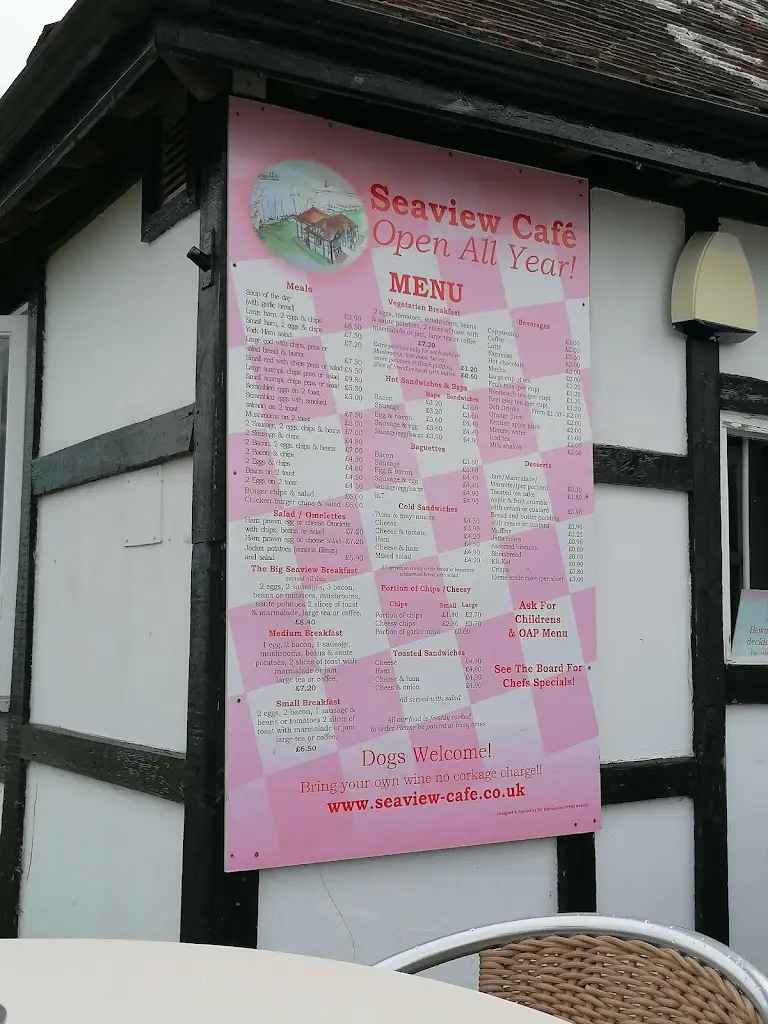 Seaview Café
Open All Year!
MENU
Meals
Soup of the day
(with garlic bread) £3.90
Large ham, 2 eggs & chips £8.50
Small ham, 2 eggs & chips
York Ham salad £7.20
Large cod with chips, peas or
salad bread & butter £7.50
Small cod with chips peas or salad £5.50
Large scampi, chips peas or salad £9.80
Small scampi, chips peas or salad £5.50
Scrambled eggs on 2 toast £5.00
Scrambled eggs with smoked
salmon on 2 toast £7.50
Mushrooms on 2 toast
2 Sausage, 2 eggs, chips & beans £7.00
2 Sausage & chips
2 Bacon, 2 eggs, chips & beans £7.00
2 Bacon & chips
2 Eggs & chips
Beans on 2 toast
2 Eggs on 2 toast £4.50
Burger chips & salad £6.00
Chicken burger chips & salad £6.00
Salad / Omelettes
Ham, prawn egg or cheese Omelette
with chips, beans or salad £7.20
Ham prawn egg or cheese salad £7.20
Jacket potatoes (various fillings)
and salad £5.90
The Big Seaview Breakfast
served all day
2 eggs, 2 sausages, 3 bacon,
beans or tomatoes, mushrooms,
saute potatoes 2 slices of toast
& marmalade, large tea or coffee.
£8.40
Medium Breakfast
1 egg, 2 bacon, 1 sausage,
mushrooms, beans & saute
potatoes, 2 slices of toast with
marmalade or jam,
large tea or coffee.
£7.20
Small Breakfast
2 eggs, 2 bacon, 1 sausage &
beans or tomatoes 2 slices of
toast with marmalade or jam
large tea or coffee.
£6.50
Vegetarian Breakfast
2 eggs, tomatoes, mushrooms, beans
& saute potatoes, 2 slices of toast with
marmalade or jam, large tea or coffee.
£7.20
Extra portions only for set breakfast
Mushrooms, tomatoes, beans,
saute potatoes or Black pudding £1.20
Slice of bread or toast with butter £0.60
Hot Sandwiches & Baps
Baps Sandwiches
Bacon £3.20 £3.60
Sausage £3.20 £3.60
Egg & bacon £3.60 £4.40
Sausage & egg £3.60 £4.40
Sausage/egg/bacon £3.90 £4.90
Baguettes
Bacon
Sausage £3.80
Egg & bacon
Sausage & egg
Sausage/egg/bacon £4.90
BLT £4.90
Cold Sandwiches
Tuna & mayonnaise £4.50
Cheese £3.90
Cheese & tomato
Ham
Cheese & ham £4.90
Mixed salad £4.20
Portion of Chips / Cheesy
Chips Small Large
Portion of chips £1.80 £2.70
Cheesy chips £2.80 £3.70
Portion of garlic mayo £0.60
Toasted Sandwiches
Cheese £4.90
Ham £4.90
Cheese & ham £4.90
Chees & onion £4.90
All served with salad
All our food is freshly cooked
to order Please be patient at busy times
Beverages
Cappuccino £2.00
Coffee
Latte
Espresso
Hot chocolate £2.00
Mocha
Large cup of tea
Fruit teas (per cup) £1.20
Rooibosch tea (per cup) £1.30
Earl grey tea (per cup) £1.20
Soft Drinks From £1.50 -
Orange juice
Kentish apple juice £2.00
Mineral water
Iced tea
Milk shakes £2.00
Desserts
Jam/Marmalade/
Marmite(per portion) £0.30
Toasted tea cake £1.80
Apple & fruit crumble
with cream or custard £3.90
Bread and butter pudding
with cream or custard £3.90
Muffins
Flapjacks
Assorted biscuits
Shortbread
Kit-Kat £0.90
Crisps £0.80
Home made cake (per slice) £3.00
Ask For
Childrens
& OAP Menu
See The Board For
Chefs Specials!
Dogs Welcome!
Bring your own wine no corkage charge!!
www.seaview-cafe.co.uk